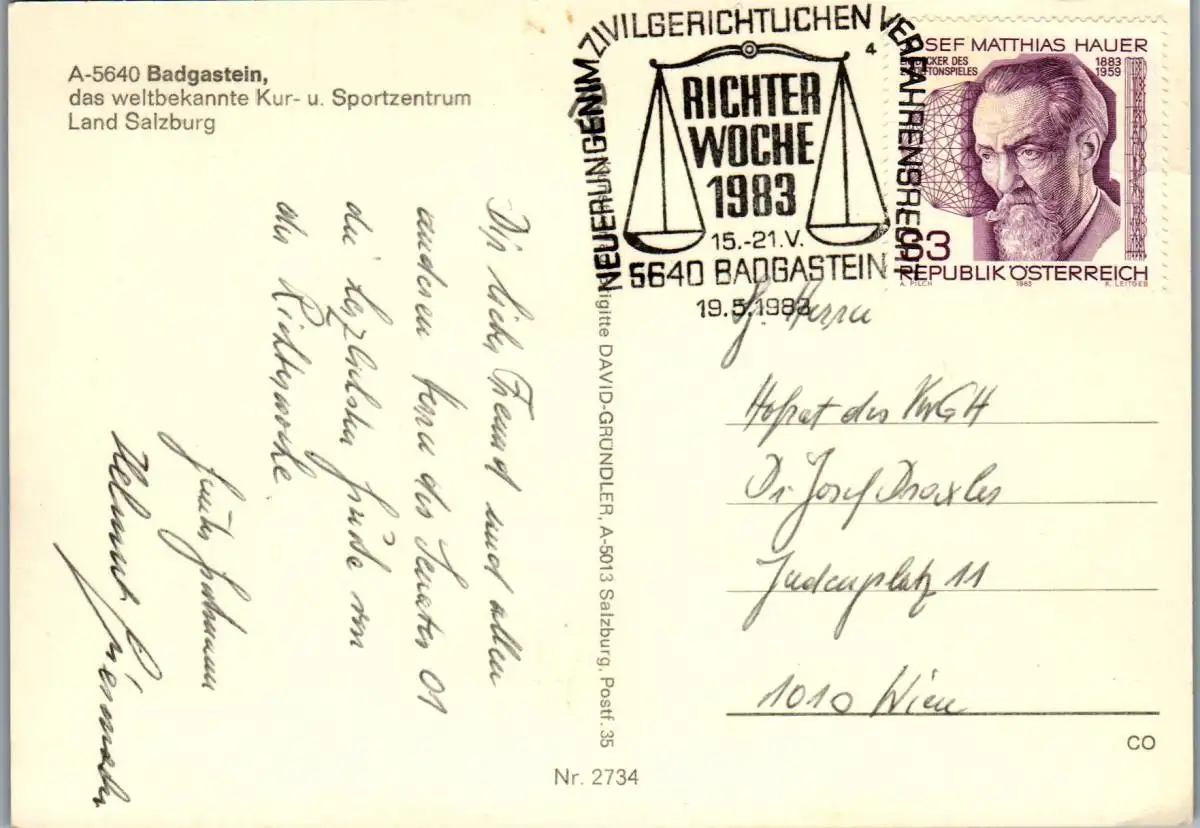 A-5640 Badgastein,
das weltbekannte Kur- u. Sportzentrum
Land Salzburg
NEUERUNGEN IM ZIVILGERICHTLICHEN VERFAHRENSRECHT
4
RICHTER
WOCHE
1983
15.-21.V.
5640 BADGASTEIN
19.5.1983
JOSEF MATTHIAS HAUER
ENTDECKER DES
ZWÖLFTONSPIELES
1883
1959
S3
REPUBLIK ÖSTERREICH
A. PILCH 1983 K. LEITGEB
Dir lieber Freund und allen
anderen Herrn des Senates 01
die herzlichsten Grüße von
der Richterwoche
Helmut
Brigitte DAVID-GRÜNDLER, A-5013 Salzburg, Postf. 35
Herrn
Hofrat des VwGH
Dr Josef Draxler
Judenplatz 11
1010 Wien
CO
Nr. 2734